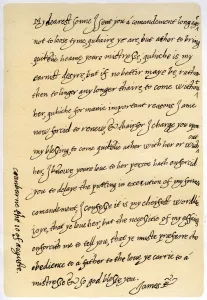 My dearest sonne I sent you a comandement long ago
not to lose time quhaire ye are, but ather to bring
quikelie hoame your mistresse, quhiche is my
earnist desyre, but if no better maye be, rather
then to linger any longer thaire, to come without
her, quhiche for manie important reasons I ame
now forced to renew & thairfor I charge you upon
my blessing to come quikelie ather with her or without
her, I knowe your love to her person hath enforced
you to delaye the putting in execution of my former
comandement, I confesse it is my cheifest worldlie
joye, that ye love her, but the necessitie of my effaires
enforcith me to tell you, that ye muste præferre the
obedience to a father to the love ye carrie to a
mistresse & so god blesse you.
James R